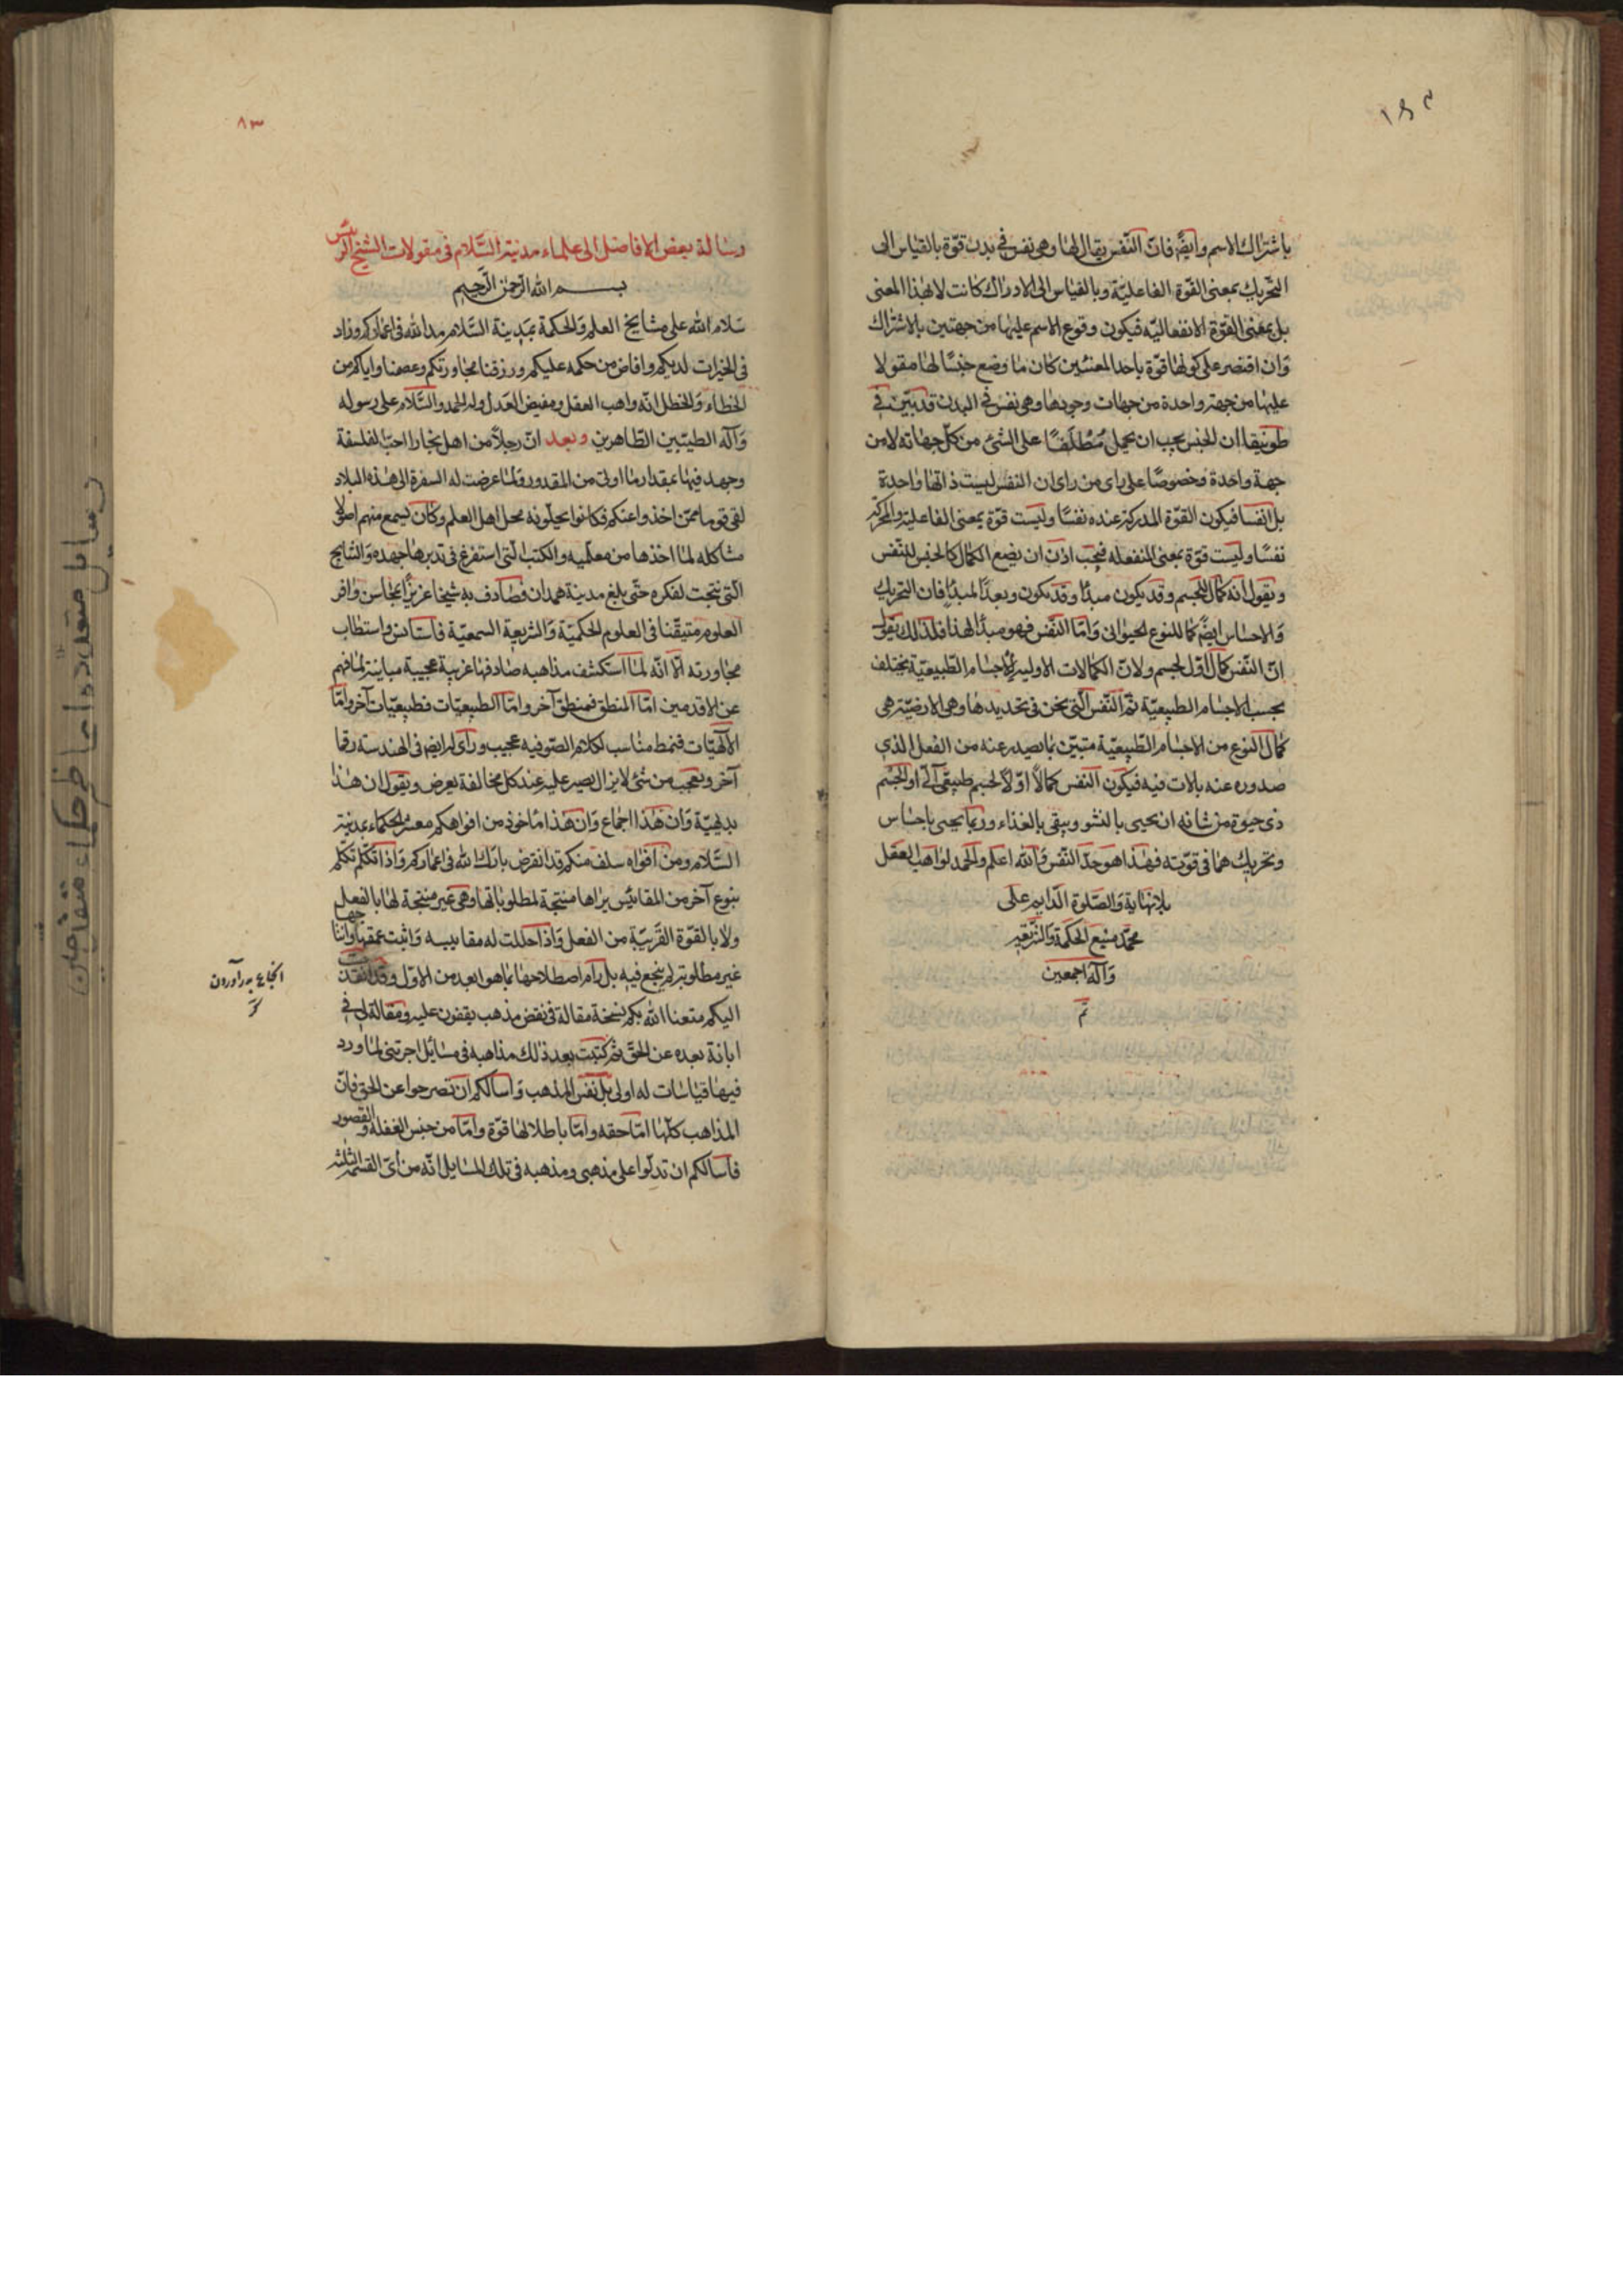 باشتراك الاسم وايضً فان النفس يقال لها وهى نفس فى بدن قوّة بالقياس الى
التحريك بمعنى القوّة الفاعليّة وبالقياس الى الادراك كانت لا لهذا المعنى
بل بمعنى القوّة الانفعاليّه فيكون وقوع الاسم عليها من جهتين بالاشتراك
وان اقتصر على كونها قوّة باحد المعنيين كان ما وضع جنسًا لها مقولا
عليها من جهة واحدة من جهات وجودها وهى نفس فى البدن قد بيّن فى
طوبيقا ان الجنس يجب ان يحمل مُطلَقًا على الشئ من كلّ جهاته لا من
جهة واحدة وخصوصًا على راى من راى ان النفس ليست ذاتها واحدة
بل انفسا فيكون القوّة المدركة عنده نفسًا وليست قوّة بمعنى الفاعلية والمحركة
نفسًا وليست قوّة بمعنى المنفعله فيجب اذن ان يضع الكمال كالجنس للنفس
ونقول انه كمال للجسم وقد يكون مبدأ وقد يكون وبعدًا لمبدأ فان التحريك
والاحساس ايضً كمال للنوع الحيوانى وامّا النفس فهو مبدأ لهذا فلذلك نقول
انّ النفس كمال اوّل لجسم ولانّ الكمالات الاوليه للاجسام الطبيعيّة يختلف
بحسب الاجسام الطبيعيّة ثمّ النفس الّتى نحن فى تحديدها وهى الارضيّة هى
كمال النوع من الاجسام الطبيعيّة متبيّن بما يصدر عنه من الفعل الذى
صدوره عنه بالات فيه فيكون النفس كمالاً اوّلاً لجسم طبيعّى آلى او لجسم
ذى حيوة من شانه ان يحيى بالنشو ويبقى بالغذاء وربما يحيى باحساس
وتحريك هما فى قوّته فهذا هو حدّ النفس والله اعلم والحمد لواهب العقل
بلانهاية والصّلوة الدّايم على
محمّد منبع الحكمة والشريعه
وآله اجمعين
تمّ
٨٣
رسالة بعض الافاضل الى علماء مدينة السّلام فى مقولات الشيخ الرئيس
بسم الله الرّحمن الرّحيم
سَلام الله على مشايخ العلم والحكمة بمَدِينة السّلام مد الله فى اعماركم وزاد
فى الخيرات لديكم وافاض من حكمه عليكم ورزقنا مجاورتكم وعصمنا واياكم من
الخطاء والخطل انّه واهب العقل ومفيض العدل وله الحمد والسّلام على رسوله
وآله الطيّبين الطّاهرين وبعد انّ رجلاً من اهل بخارا احبّ الفلسفة
وجهد فيها بمقدار ما اوتى من المقدور ولما عرضت له السفرة الى هذه البلاد
لقى قوما ممّن اخذوا عنكم فكانوا يحلّونه محل اهل العلم وكان يسمع منهم اصولا
مشاكله لما اخذها من معلّميه والكتب الّتى استفرغ فى تدبرها جهده والنتايج
الّتى نتجت لفكره حتّى بلغ مدينة همدان فصادف به شيخا عزيزًا بمجاسن وافر
العلوم متيقّنا فى العلوم الحكميّة والشريعة السمعيّة فاستانس واستطاب
مجاورته الا انّه لما استكشف مذاهبه صادفها غريبة عجيبة مباينة لما فهم
عن الاقدمين امّا المنطق فمنطق آخر وامّا الطبيعيّات فطبيعيّات آخر وامّا
الالهيّات فنمط مناسب لكلام الصّوفيه عجيب وراى له ايضً فى الهندسة رقما
آخر وتعجب من شئ لايزال يصير عليه عند كل مخالفة يعرض ويقول ان هذا
بديهيّة وان هذا اجماع وانّ هذا ماخوذ من افواهكم معشر الحكماء بمدينة
السّلام ومن افواه سلف منكم قد انقرض بارك الله فى اعماركم واذا تكلّم تكلّم
بنوع آخر من المقائيس يراها منتجة لمطلوباتها وهى غير منتجة لها بالفعل
ولا بالقوّة القريبة من الفعل واذا حللت له مقاييسه واثبت عقمها وانتاجها
غير مطلوبة لم ينجع فيه بل رام اصطلاحها بما هو ابعد من الاوّل وقد انفذت
اليكم متعنا الله بكم نسخة مقالة فى نقض مذهب يقفون عليه ومقالة لى فى
ابانة بعده عن الحقّ ثم كتبت بعد ذلك مذاهبه فى مسائل اجرتنى لما ورد
فيها قياسات له اولى بل نفس المذهب واسالكم ان تصرحوا عن الحق فانّ
المذاهب كلّها امّا حقه وامّا باطلا لها قوّة وامّا من جنس الغفلة والقصور
فاسالكم ان تدلّوا على مذهبى ومذهبه فى تلك المسايل انّه من أىّ القسمة الثلثه